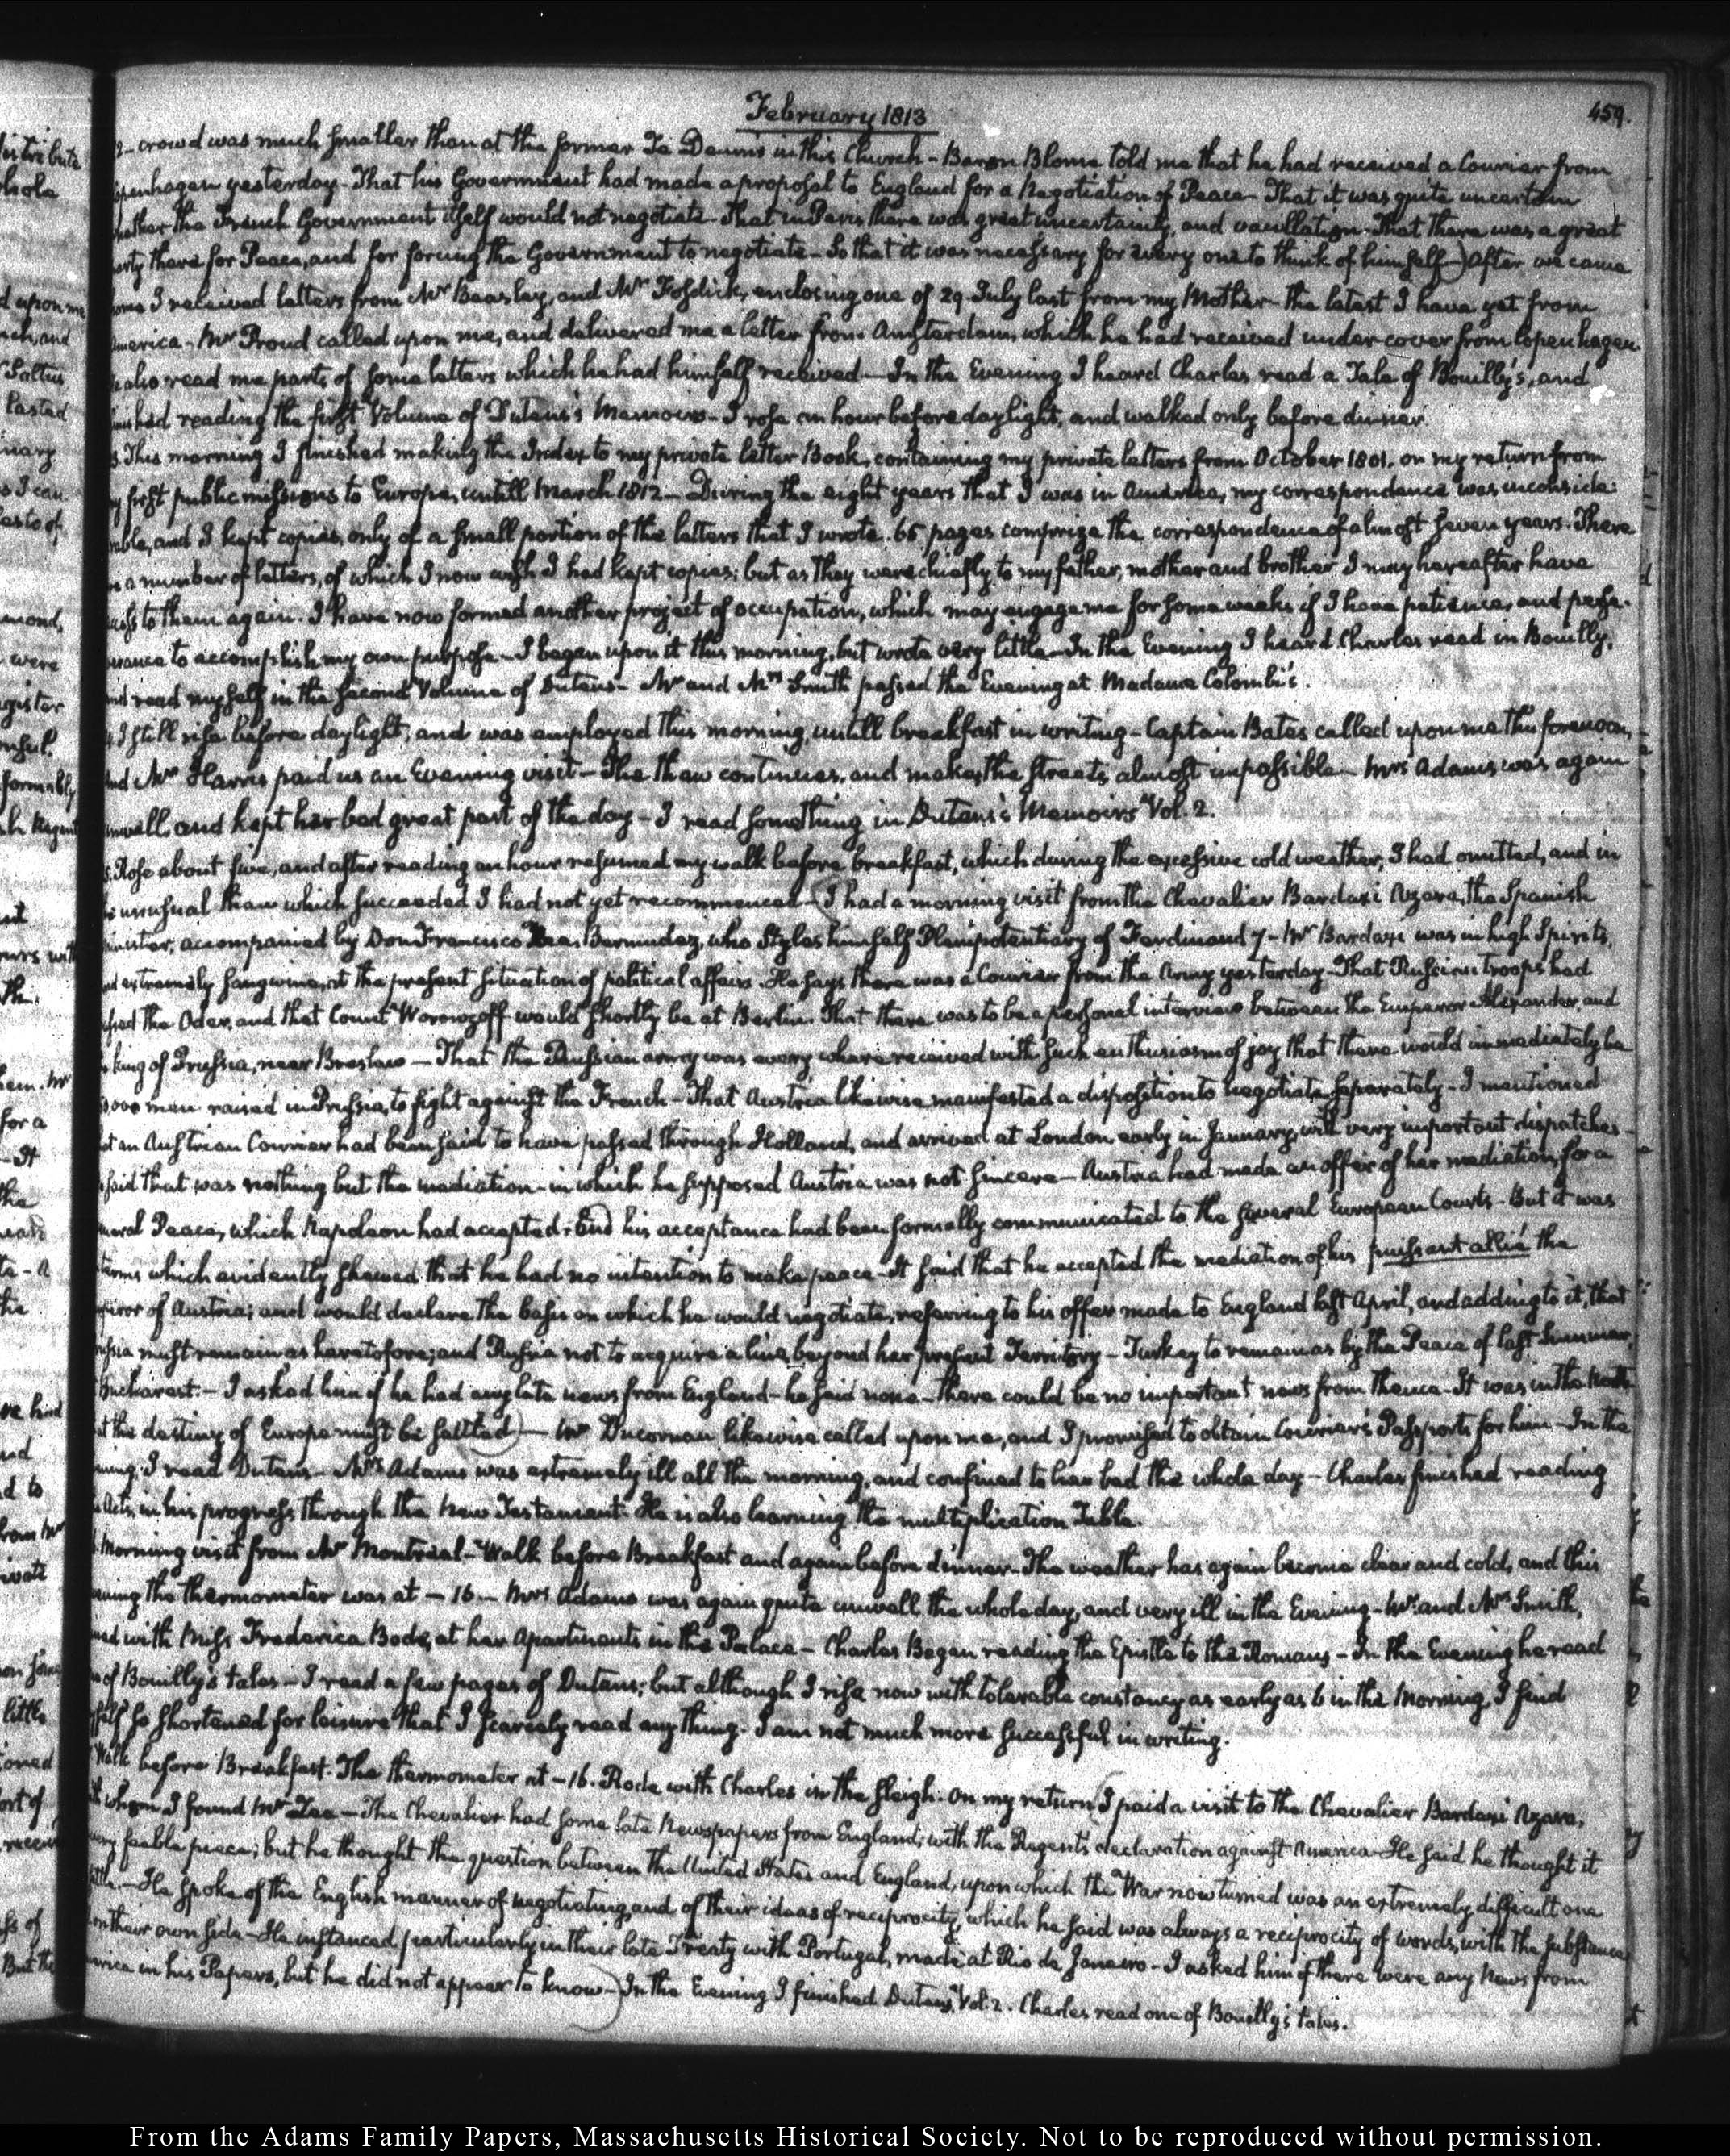 February 1813
459.
crowd was much smaller than at the former Te Deums in this Church - Baron Blome told me that he had received a Courier from
yesterday - That his Government had made a proposal to England for a Negotiation of Peace - That it was quite uncertain
whether the French Government itself would not negotiate - That in Paris there was great uncertainty, and vacillation - That there was a great
party there for Peace, and for forcing the Government to negotiate - So that it was necessary for every one to think of himself -) After we came
home I received letters from Mr Beasley, and Mr Fosdick, enclosing one of 29. July last from my Mother - the latest I have yet from
America - Mr Proud called upon me, and delivered me a letter from Amsterdam, which he had received under cover from Copenhagen.
also read me parts of some letters which he had himself received - In the Evening I heard Charles read a Tale of Bouilly's, and
reading the first Volume of Dutens's Memoirs - I rose an hour before daylight, and walked only before dinner.
This morning I finished making the Index to my private letter Book, containing my private letters from October 1801. on my return from
my first public missions to Europe, untill March 1812 - During the eight years that I was in America, my correspondence was inconside:
rable, and I kept copies, only of a small portion of the letters that I wrote. 65 pages comprize the correspondence of almost seven years. There
a number of letters, of which I now wish I had kept copies; but as they were chiefly to my father, mother and brother I may hereafter have
to them again. I have now formed another project of occupation, which may engage me for some weeks if I have patience, and perse-
verance to accomplish my own purpose - I began upon it this morning, but wrote very little - In the Evening I heard Charles read in Bouilly,
and read myself in the second Volume of Dutens - Mr and Mrs Smith passed the Evening at Madame Colombi's.
I still rise before daylight, and was employed this morning, untill breakfast in writing - Captain Bates called upon me this forenoon,
and Mr Harris paid us an Evening visit - The thaw continues, and makes the streets almost impassible - Mrs Adams was again
unwell, and kept her bed great part of the day - I read something in Dutens's Memoirs Vol. 2.
Rose about five, and after reading an hour resumed my walk before breakfast, which during the excessive cold weather, I had omitted, and in
unusual thaw which succeeded I had not yet recommenced - I had a morning visit from the Chevalier Bardaxi Azara, the Spanish
Minister, accompanied by Don Francisco Zea Bermudez, who styles himself Plenipotentiary of Ferdinand 7 - Mr Bardaxi was in high Spirits,
and extremely sanguine, at the present situation of political affairs. He says there was a Courier from the Army yesterday - That Russian troops had
the Oder, and that Count Woronzoff would shortly be at Berlin. That there was to be a personal interview between the Emperor Alexander, and
king of Prussia, near Breslaw - That the Russian army was every where received with such enthusiasm of joy that there would immediately be
men raised in Prussia, to fight against the French - That Austria likewise manifested a disposition to negotiate separately - I mentioned
that an Austrian Courier had been said to have passed through Holland, and arrived at London early in January, with very important dispatches -
said that was nothing but the mediation - in which he supposed Austria was not sincere - Austria had made an offer of her mediation, for a
Peace, which Napoleon had accepted. And his acceptance had been formally communicated to the several European Courts - But it was
terms which evidently shewed that he had no intention to make peace - It said that he accepted the mediation of his puissant allié the
Emperor of Austria; and would declare the basis on which he would negotiate, referring to his offer made to England last April, and adding to it, that
must remain as heretofore; and Russia not to acquire a line beyond her present Territory - Turkey to remain as by the Peace of last Summer,
Bucharest. - I asked him if he had any late news from England - he said none - there could be no important news from thence - It was in the North
that the destiny of Europe must be settled) - Mr Ducornau likewise called upon me, and I promised to obtain Courier's Passports for him - In the
Evening, I read Dutens - Mrs Adams was extremely ill all the morning, and confined to her bed the whole day - Charles finished reading
Acts, in his progress through the New Testament. He is also learning the multiplication Table.
Morning visit from Mr Montréal - Walk before Breakfast and again before dinner - The weather has again become clear and cold, and this
the thermometer was at - 16 - Mrs Adams was again quite unwell the whole day, and very ill in the Evening - Mr and Mrs Smith,
with Miss Frederica Bode, at her Apartments in the Palace - Charles Began reading the Epistle to the Romans - In the Evening he read
of Bouilly's tales - I read a few pages of Dutens; but although I rise now with tolerable constancy as early as 6 in the Morning, I find
myself so shortened for leisure that I scarcely read any thing. I am not much more successful in writing.
Walk before Breakfast. The thermometer at - 16. Rode with Charles in the sleigh. On my return (I paid a visit to the Chevalier Bardaxi Azara,
whom I found Mr Zea - The Chevalier had some late Newspapers from England; with the Regent's declaration against America - He said he thought it
very feeble piece; but he thought the question between the United States and England, upon which the War now turned was an extremely difficult one
- He spoke of the English manner of negotiating, and of their ideas of reciprocity, which he said was always a reciprocity of words, with the substance
on their own side - He instanced particularly in their late Treaty with Portugal, made at Rio de Janeiro - I asked him if there were any News from
America in his Papers, but he did not appear to know -) In the Evening I finished Dutens, Vol. 2. Charles read one of Bouilly's tales.
From the Adams Family Papers, Massachusetts Historical Society. Not to be reproduced without permission.